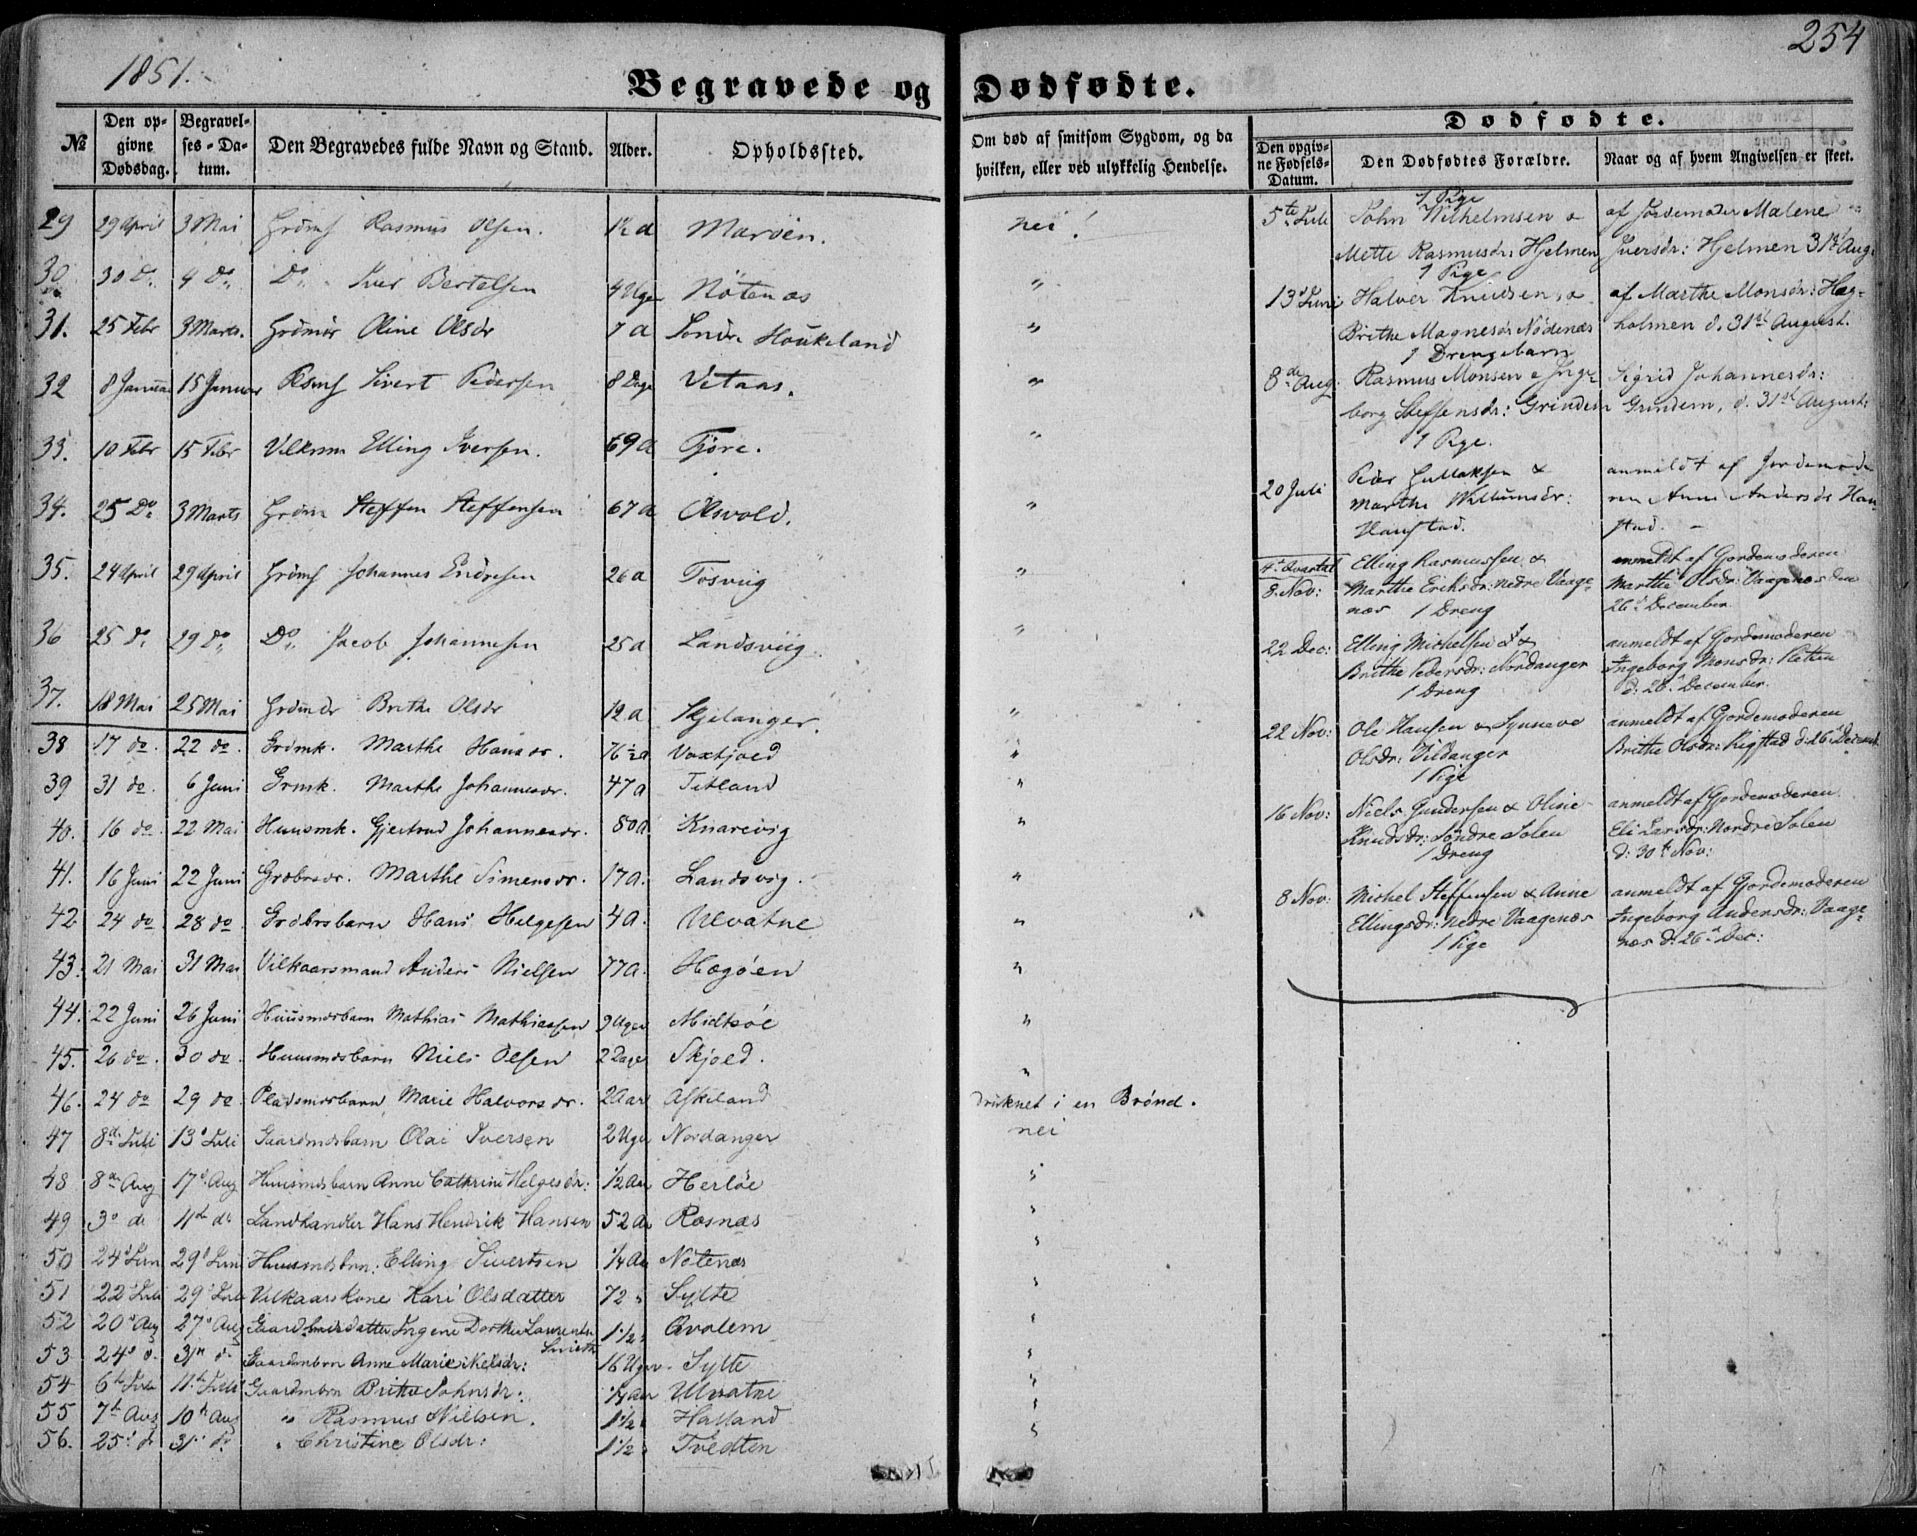 1851.
254
Begravede og Dødfødte.
№
Den opgivne Dødsdag.
Begravelses-Datum.
Den Begravedes fulde Navn og Stand.
Alder.
Opholdssted.
Om død af smitsom Sygdom, og da hvilken, eller ved ulykkelig Hendelse.
Dødfødte.
Den opgivne Fødsels-Datum.
Den Dødfødtes Forældre.
Naar og af hvem Angivelsen er skeet.
29 29 April 3 Mai Rasmus Olsen. 1½ a Marøen. nei!
30 30 Do. 4 Do. Do. Iver Bertelsen 4 Uger Nötenæs "
31. 25 Febr 3 Marts. Oline Olsdr 7 a Söndre Houkeland "
32 8 Januar 15 Januar Sivert Pedersen 8 Dage Vetaas. "
33. 10 Febr 15 Febr Vilkrm Elling Iversen. 69 a Fjöre. "
34. 25 Do. 3 Marts Steffen Steffensen 67 a Olsvold. "
35. 24 April 29 April Johannes Endresen 26 a Tosviig "
36 25 do. 29 Do. Do. Jacob Johannesen 25 a Landsviig. "
37. 18 Mai 25 Mai Brithe Olsdr 12 a Skjelanger. "
38 17 do. 22 do. Grdmk. Marthe Hansdr. 76½ a Voxtjoed "
39 31 do. 6 Juni Grmk. Marthe Johannesdr. 47 a Titland "
40. 16 do. 22 Mai Huusmk. Gjertrud Johannesdr. 80 a. Knarevig "
41. 16 Juni 22 Juni Marthe Simensdr. 17 a. Landsvig. "
42 24 do. 28 do. Hans Helgesen 4 a. Ulvatne "
43. 21 Mai 31 Mai Vilkaarsmand Anders Nielsen 77 a. Hægöen "
44. 22 Juni 26 Juni Huusmdsbarn Mathias Mathiassen 9 Uger Midtsöe "
45. 26 do. 30 do. Huusmdsbarn Niels Olsen 2 Dage Skjold. "
46. 24 do 29 do. Pladsmdsbarn Marie Halvorsdr. 2 Aar Askeland druknet i en Brönd.
47 8de Juli 13d Juli Gaardmdsbarn Olai Iversen 2 Uger Nordanger nei
48 8de Aug 17d Aug Huusmdsbarn Anne Cathrine Helgesdr: ½ Aar Herlöe "
49 3d do 11te do Landhandler Hans Hendrik Hansen 52 Aar Rosnæs "
50 24d Juni 29d Juni Huusmdsbrn: Elling Sivertsen ¼ Aar Nötenæs "
51 22d Juli 29d Juli Vilkaarskone Kari Olsdatter 72 " Sylte "
52 20d Aug 27d Aug Ingene Dorthea 1½ " Qvalem "
53 24d d. 31te d. Gaardmbrn Anne Marie Nelsdr: 16 Uger Sylte "
54 6te Juli 11te Juli Gaardmbrn Brithe Johnsdr: ¼ Aar Ulvatne "
55 7te Aug 10de Aug " Rasmus Nielsen. 1½ " Halland "
56. 25d d. 31d d. " Christine Olsdr: 1½ " Tvedten
5te Juli 1 Pige
John Wilhelmsen &
Mette Rasmusdr: Hjelmen
af Jordemoder Malene
Iversdr: Hjelmen 31te Aug:
13d Juni 1 Pige
Halver Knudsen &
Brithe Magnesdr Nödenæs
af Marthe Monsdr: Hægholmen d. 31te August.
8de Aug: 1 Drengebarn
Rasmus Monsen & Ingeborg Steffensdr: Grindem
Sigrid Johannesdr:
Grindem, d. 31te August:
20 Juli 1 Pige.
Peder Gullaksen &
Marthe Willumsdr:
Hanstad.
anmeldt af Jordemoderen Anne Andersdr Hanstad.
4de Qvartal
8. Nov: Elling Rasmussen &
Marthe Eriksdr: nedre Vaagenæs 1 Dreng
anmeldt af Gjordemoderen
Marthe Olsdr: Vaagenæs den
26d December
22 Dec: Elling Michelsen &
Brithe Pedersdr: Nordanger
1 Dreng
anmeldt af Gjordemoderen
Ingeborg Monsdr: Sletten
d: 26d December.
22 Nov: Ole Hansen & Synneve
Olsdr: Vildanger
1 Pige
anmeldt af Gjordemoderen
Brithe Olsdr: Rigstad d: 26d Decemb.
16 Nov: Niels Gundersen & Oline
Knudsdr: Söndre Solen
1 Dreng
anmeldt af Gjordemoderen
Eli Larsdr: Nordre Solen
d: 30te Nov:
8 Nov: Michel Steffensen & Anne
Ellingsdr: nedre Vaagenæs
1 Pige
anmeldt af Gjordemoderen
Ingeborg Andersdr: Vaagenæs d: 26d Dec: